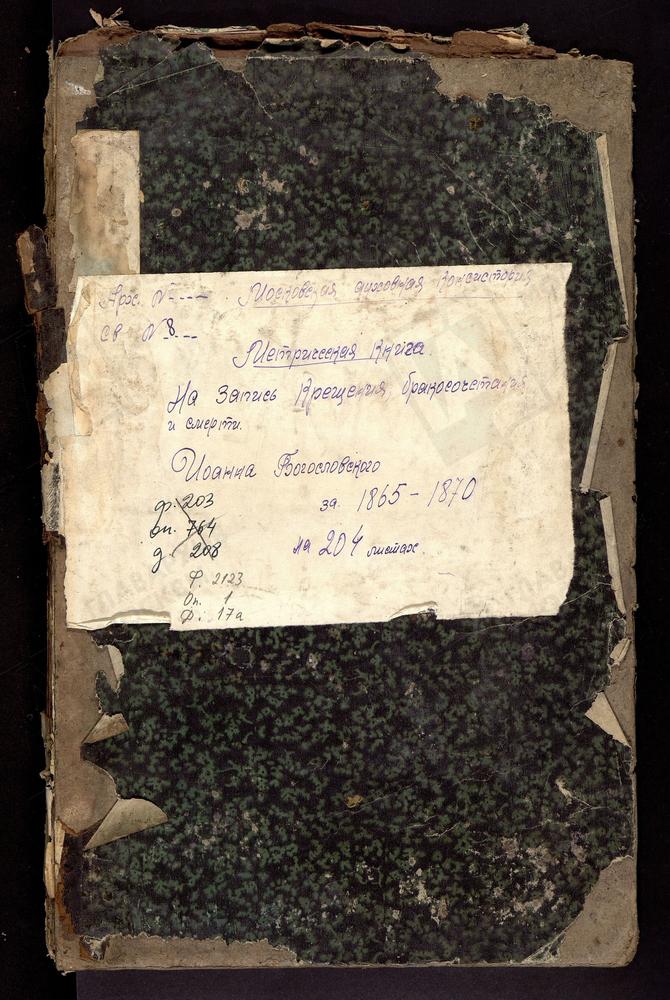 Арх. №---- Московская духовная консистория
св № 8--
Метрическая книга.
На запись крещения бракосочетания
и смерти.
Иоанна Богословского
ф. 203
за 1865 - 1870
оп. 764
на 204 листах.
д. 208
Ф. 2123
Оп. 1
Д. 17а